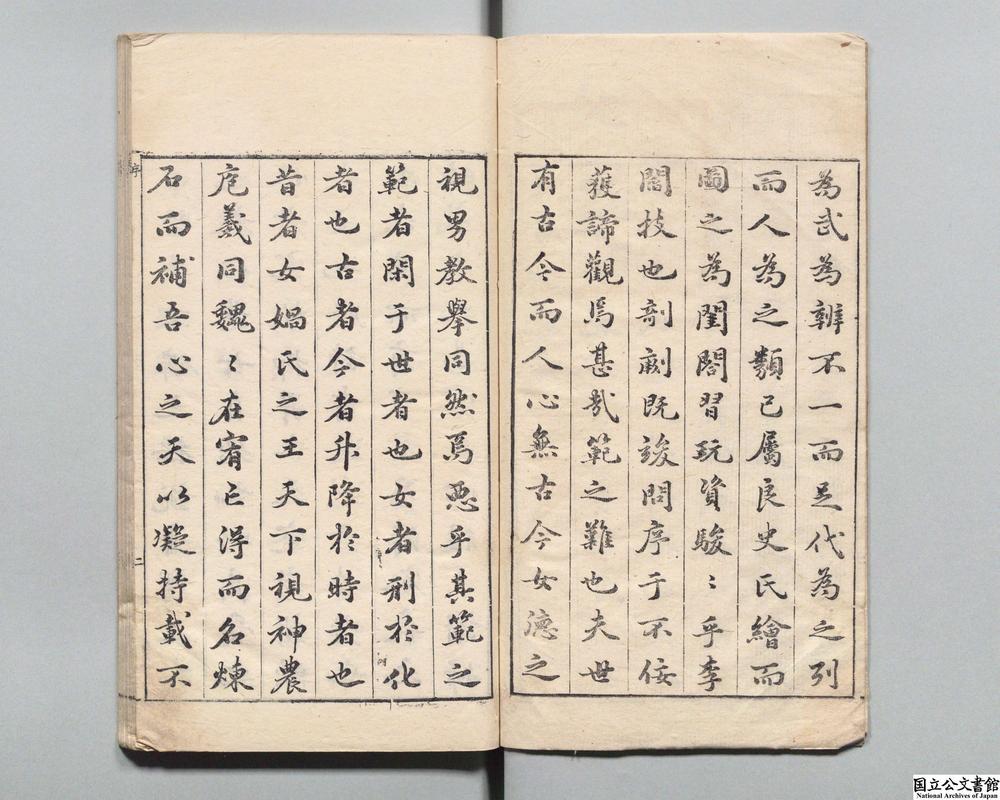 為武為辨不一而足代為之列
而人為之類已屬良史氏繪而
圖之為閨閤習玩資駸〻乎李
閻技也剞劂既竣問序于不佞
獲諦觀焉甚哉範之難也夫世
有古今而人心無古今女德之
視男教舉同然焉惡乎其範之
範者閑于世者也女者刑於化
者也古者今者升降於時者也
昔者女媧氏之王天下視神農
庖羲同巍〻在宥已得而名煉
石而補吾心之天以凝持載不
序
二
国立公文書館
National Archives of Japan